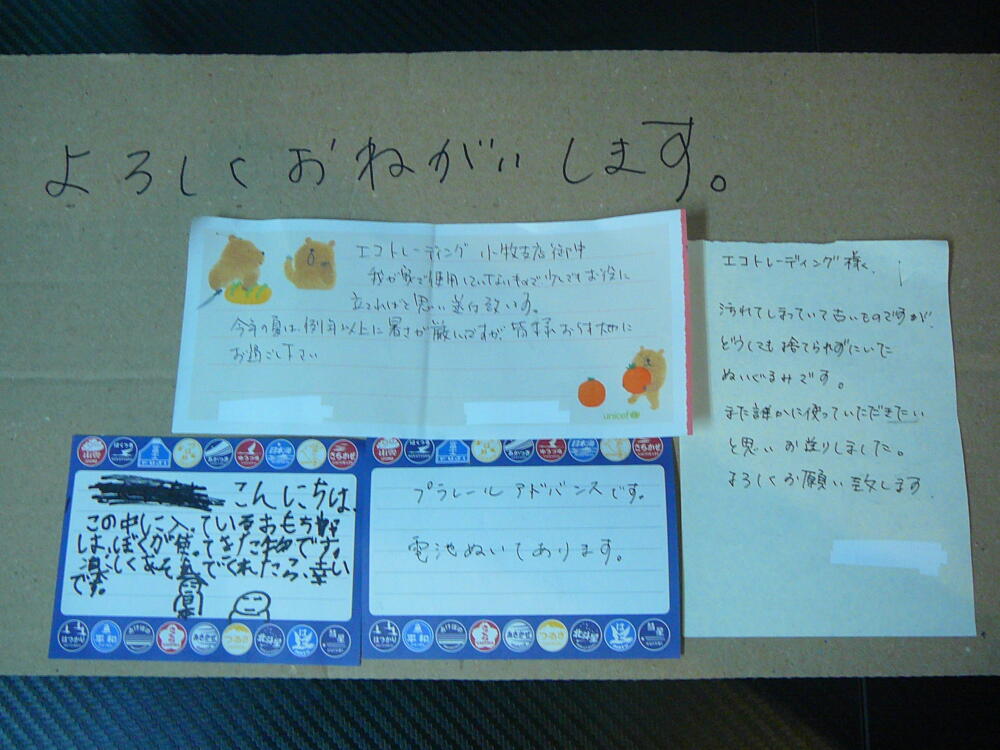 よろしくおねがいします。
エコトレーディング 小牧支店御中
我が家で使用していないもので少しでもお役に
立てればと思い送り致します。
今年の夏は、例年以上に暑さが厳しいですが、皆様お体大切に
お過ごし下さい
unicef
エコトレーディング様、
汚れてしまっていて古いものですが、
どうしても捨てられずにいた
ぬいぐるみです。
また誰かに使っていただきたい
と思いお送りしました。
よろしくお願い致します
はくつる
あかつき
ゆうづる
日本海
さちかぜ
こんにちは、
この中に入っているおもちゃ
は、ぼくが使ってきた物です。
楽しくあそんでくれたら、幸い
です。
はつかり
平和
あけぼの
さくら
あさかぜ
つるぎ
北斗星
はと
彗星
はくつる
あかつき
ゆうづる
日本海
さちかぜ
プラレール アドバンスです。
電池ぬいてあります。
はつかり
平和
あけぼの
さくら
あさかぜ
つるぎ
北斗星
はと
彗星